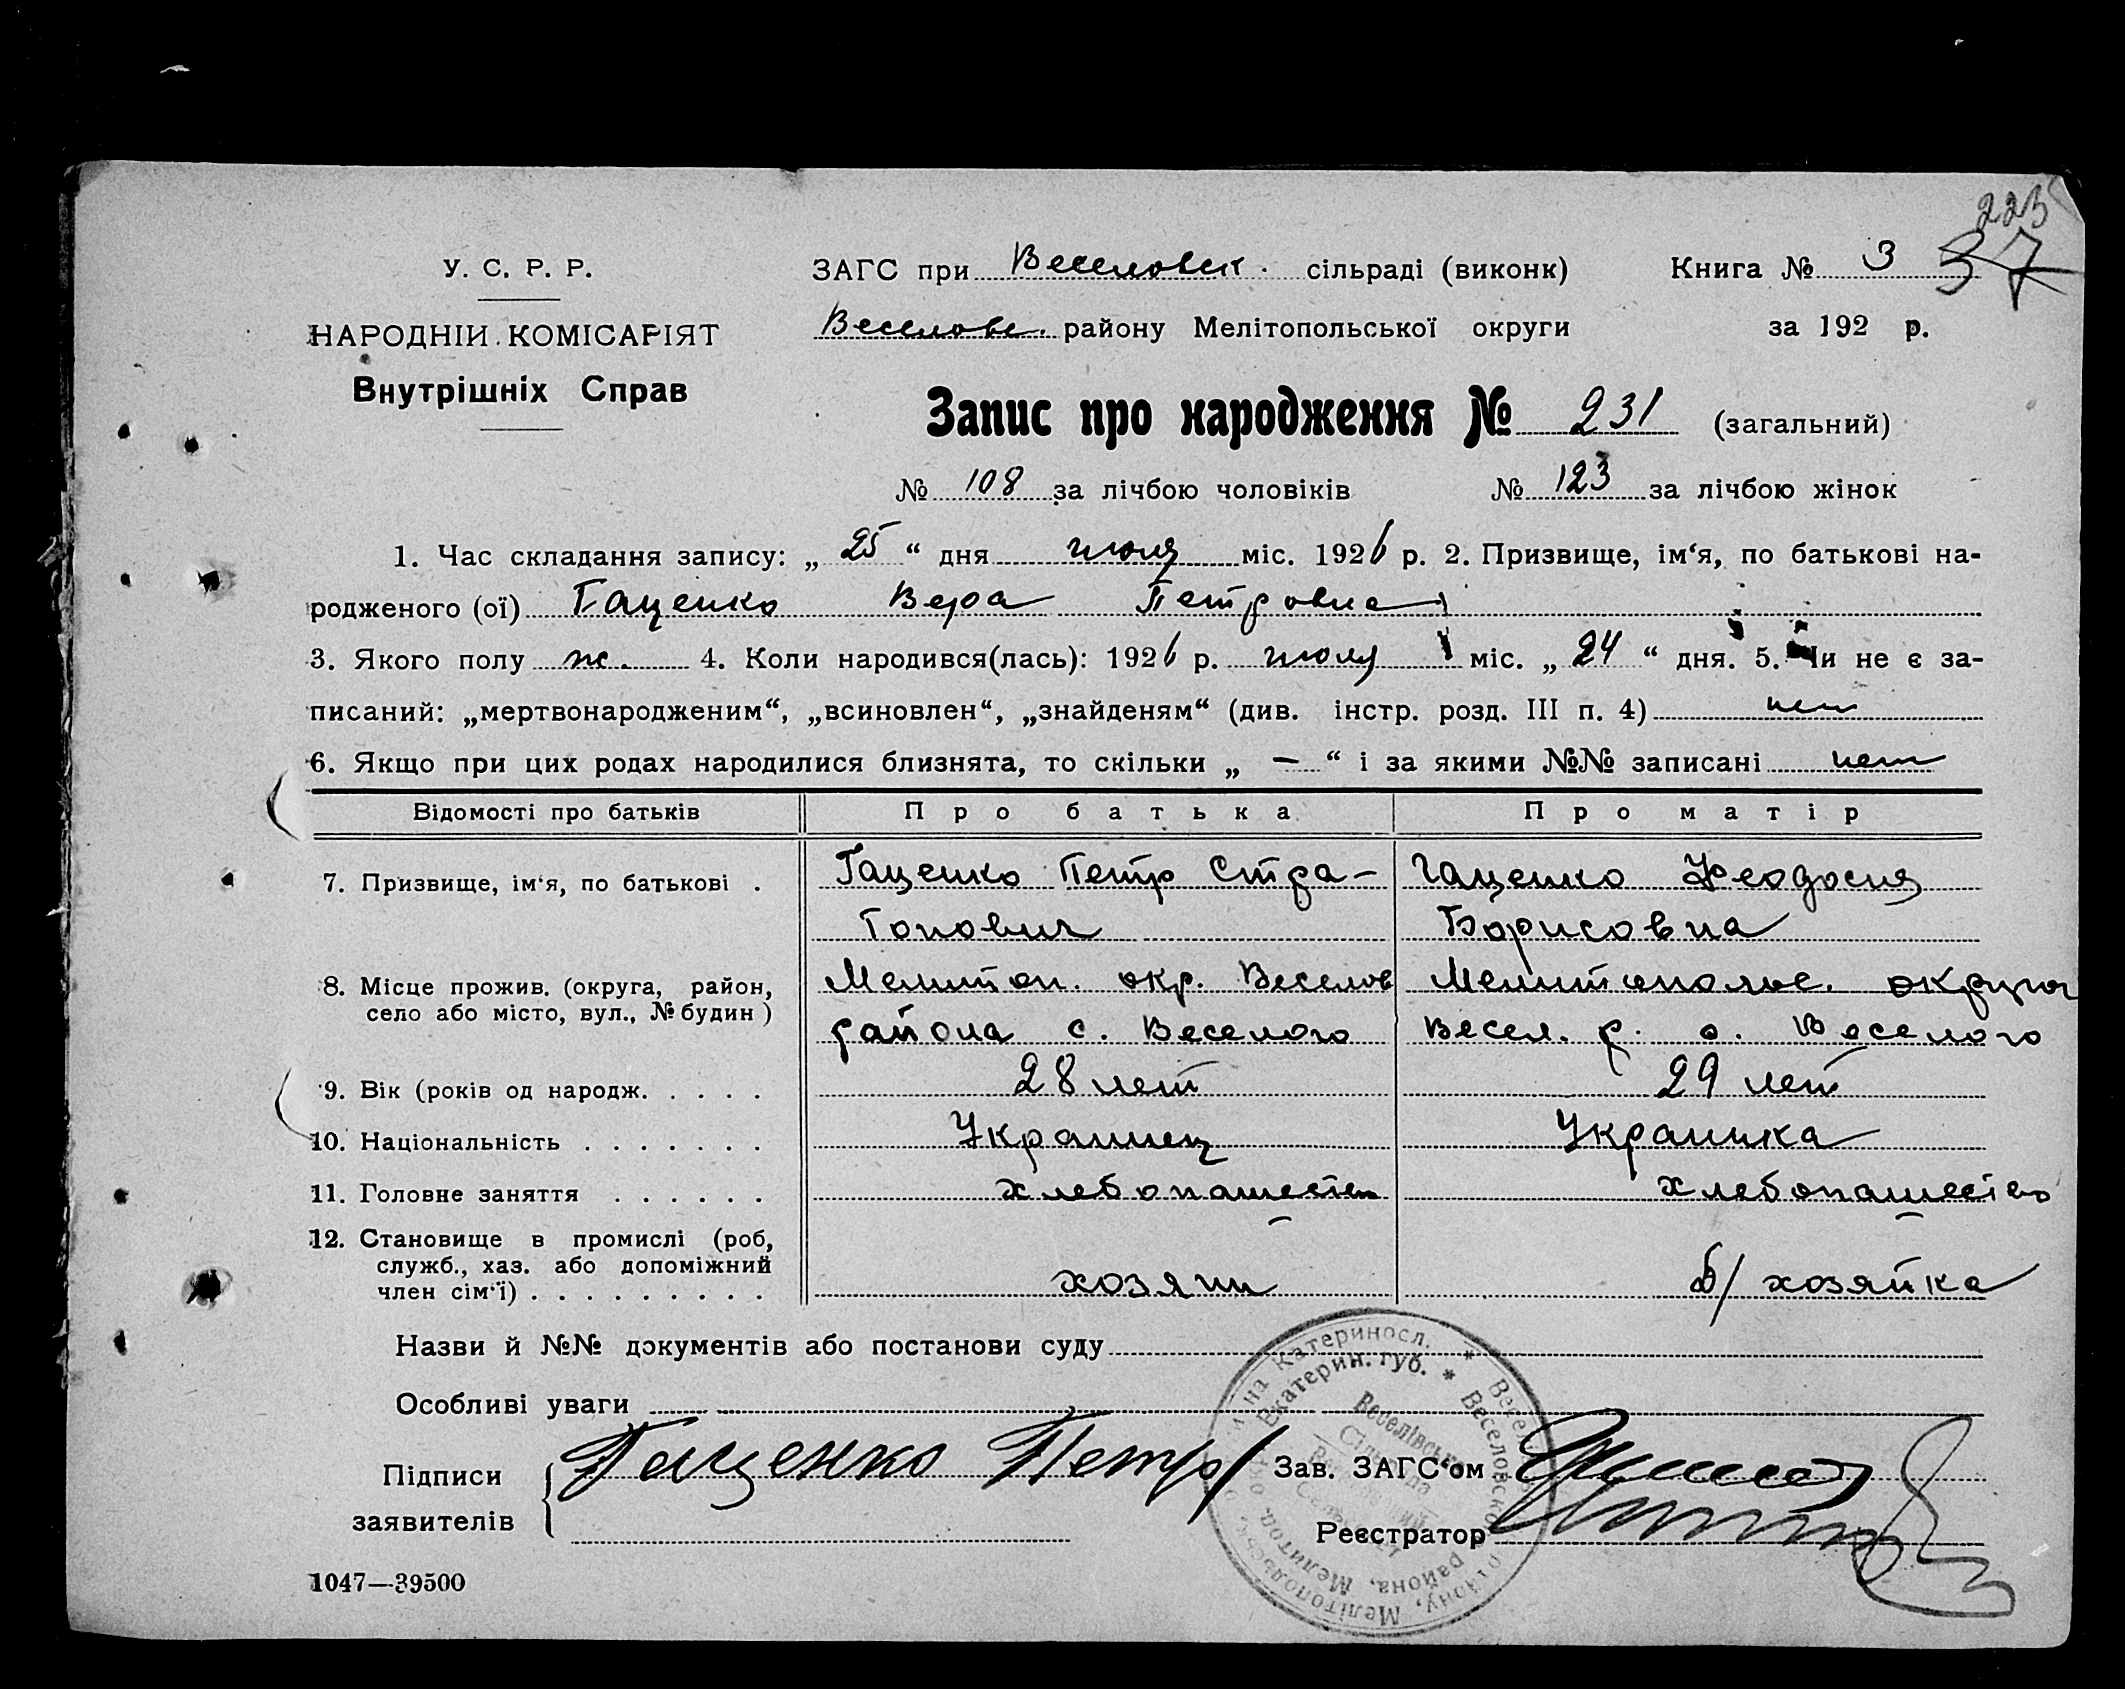 223
У. С. Р. Р. ЗАГС при Веселовск. сільраді (виконк) Книга № 3 37
НАРОДНІИ КОМІСАРІЯТ Веселовс. району Мелітопольської округи за 192 р.
Внутрішніх Справ
Запис про народження № 231 (загальний)
№ 108 за лічбою чоловіків № 123 за лічбою жінок
1. Час складання запису: „ 25 “ дня июля міс. 1926 р. 2. Призвище, ім‘я, по батькові на-
родженого (ої) Гаценко Вера Петровна
3. Якого полу ж. 4. Коли народився(лась): 1926 р. июля міс. „ 24 “ дня. 5. Чи не є за-
писаний: „мертвонародженим“, „всиновлен“, „знайденям“ (див. інстр. розд. III п. 4) нет
6. Якщо при цих родах народилися близнята, то скільки „ — “ і за якими №№ записані нет
Відомості про батьків Про батька Про матір
7. Призвище, ім‘я, по батькові . Гаценко Петр Стра- Гаценко Феодосия
тонович Борисовна
8. Місце прожив. (округа, район, Мелитоп. окр. Веселов Мелитопольс. округа
село або місто, вул., № будин ) района с. Веселого Весел. р. с. Веселого
9. Вік (років од народж. . . . . . 28 лет 29 лет
10. Національність . . . . . . . Украинец Украинка
11. Головне заняття . . . . . . хлебопашество хлебопашество
12. Становище в промислі (роб,
служб., хаз. або допоміжний
член сім‘ї) . . . . . . . . . хозяин д/ хозяйка
Назви й №№ документів або постанови суду
Особливі уваги
Підписи Гаценко Петр Зав. ЗАГС‘ом
заявителів Реєстратор
1047—39500
на Катериносл. * Веселівсь
Екатерин. губ. * Веселовско района, Мелитоп. о
району, Мелітопольськ. окр
Веселівсь
Сільрада